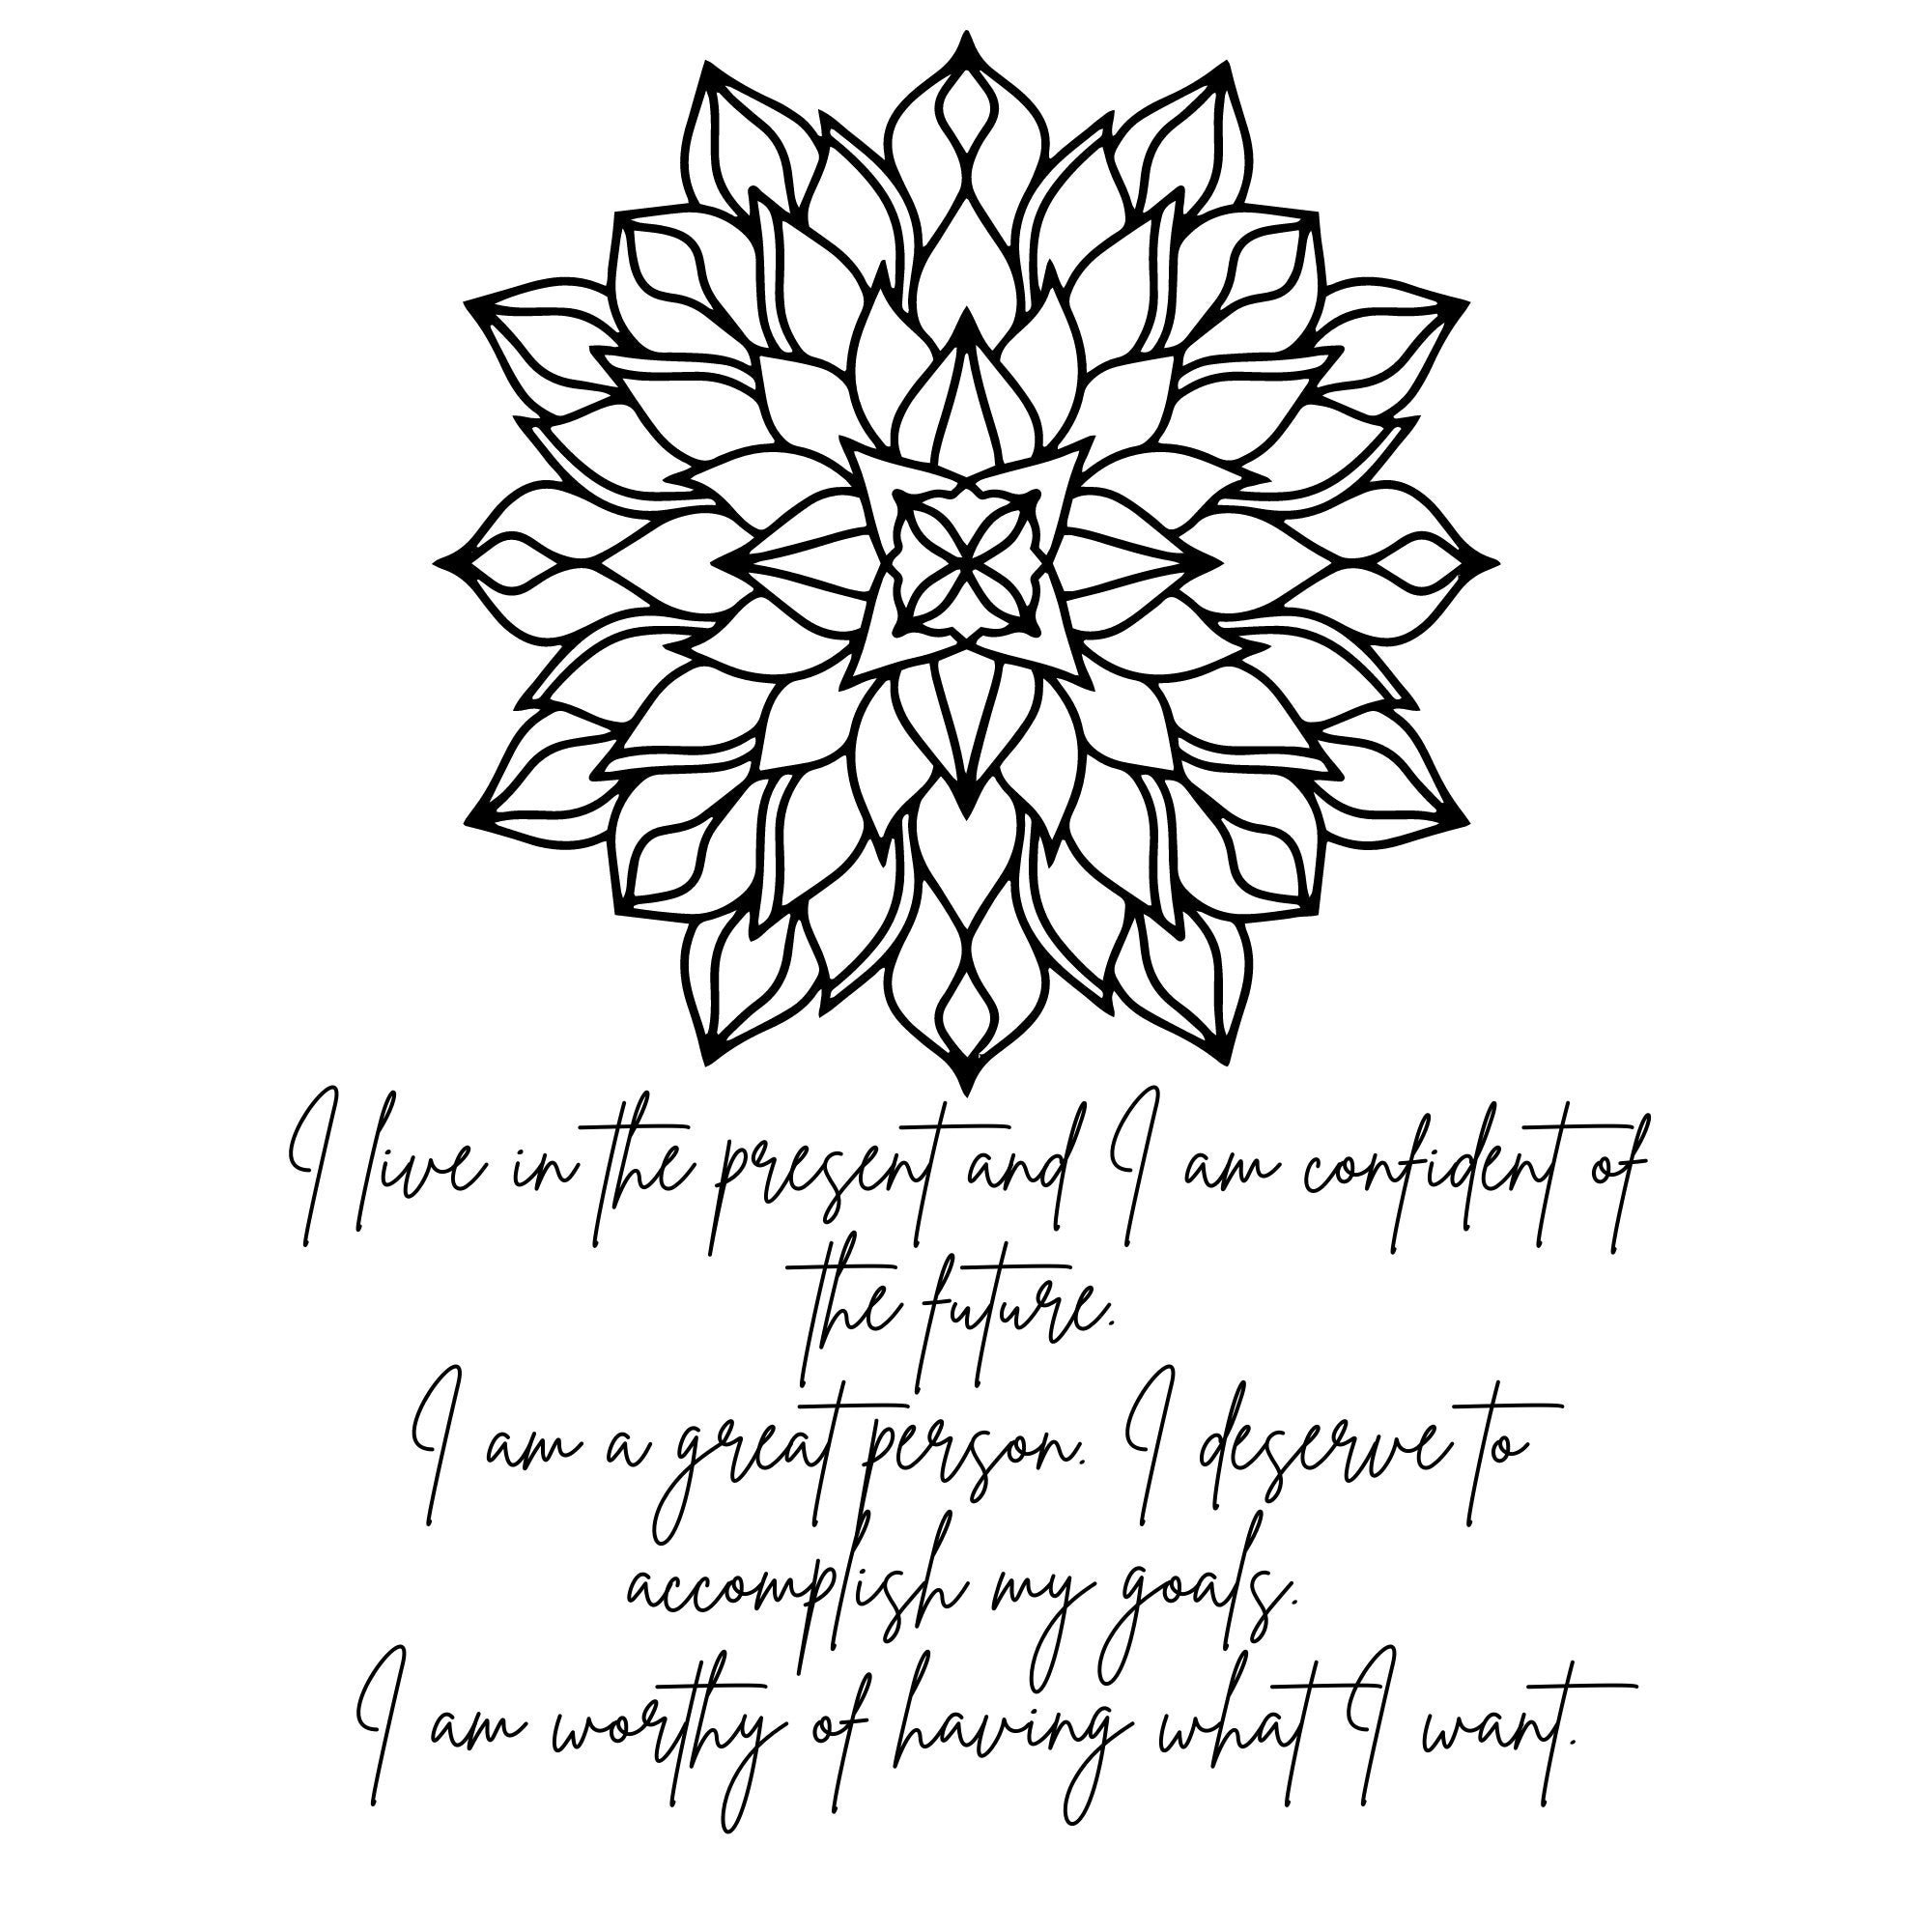 I live in the present and I am confident of
the future.
I am a great person. I deserve to
accomplish my goals.
I am worthy of having what I want.